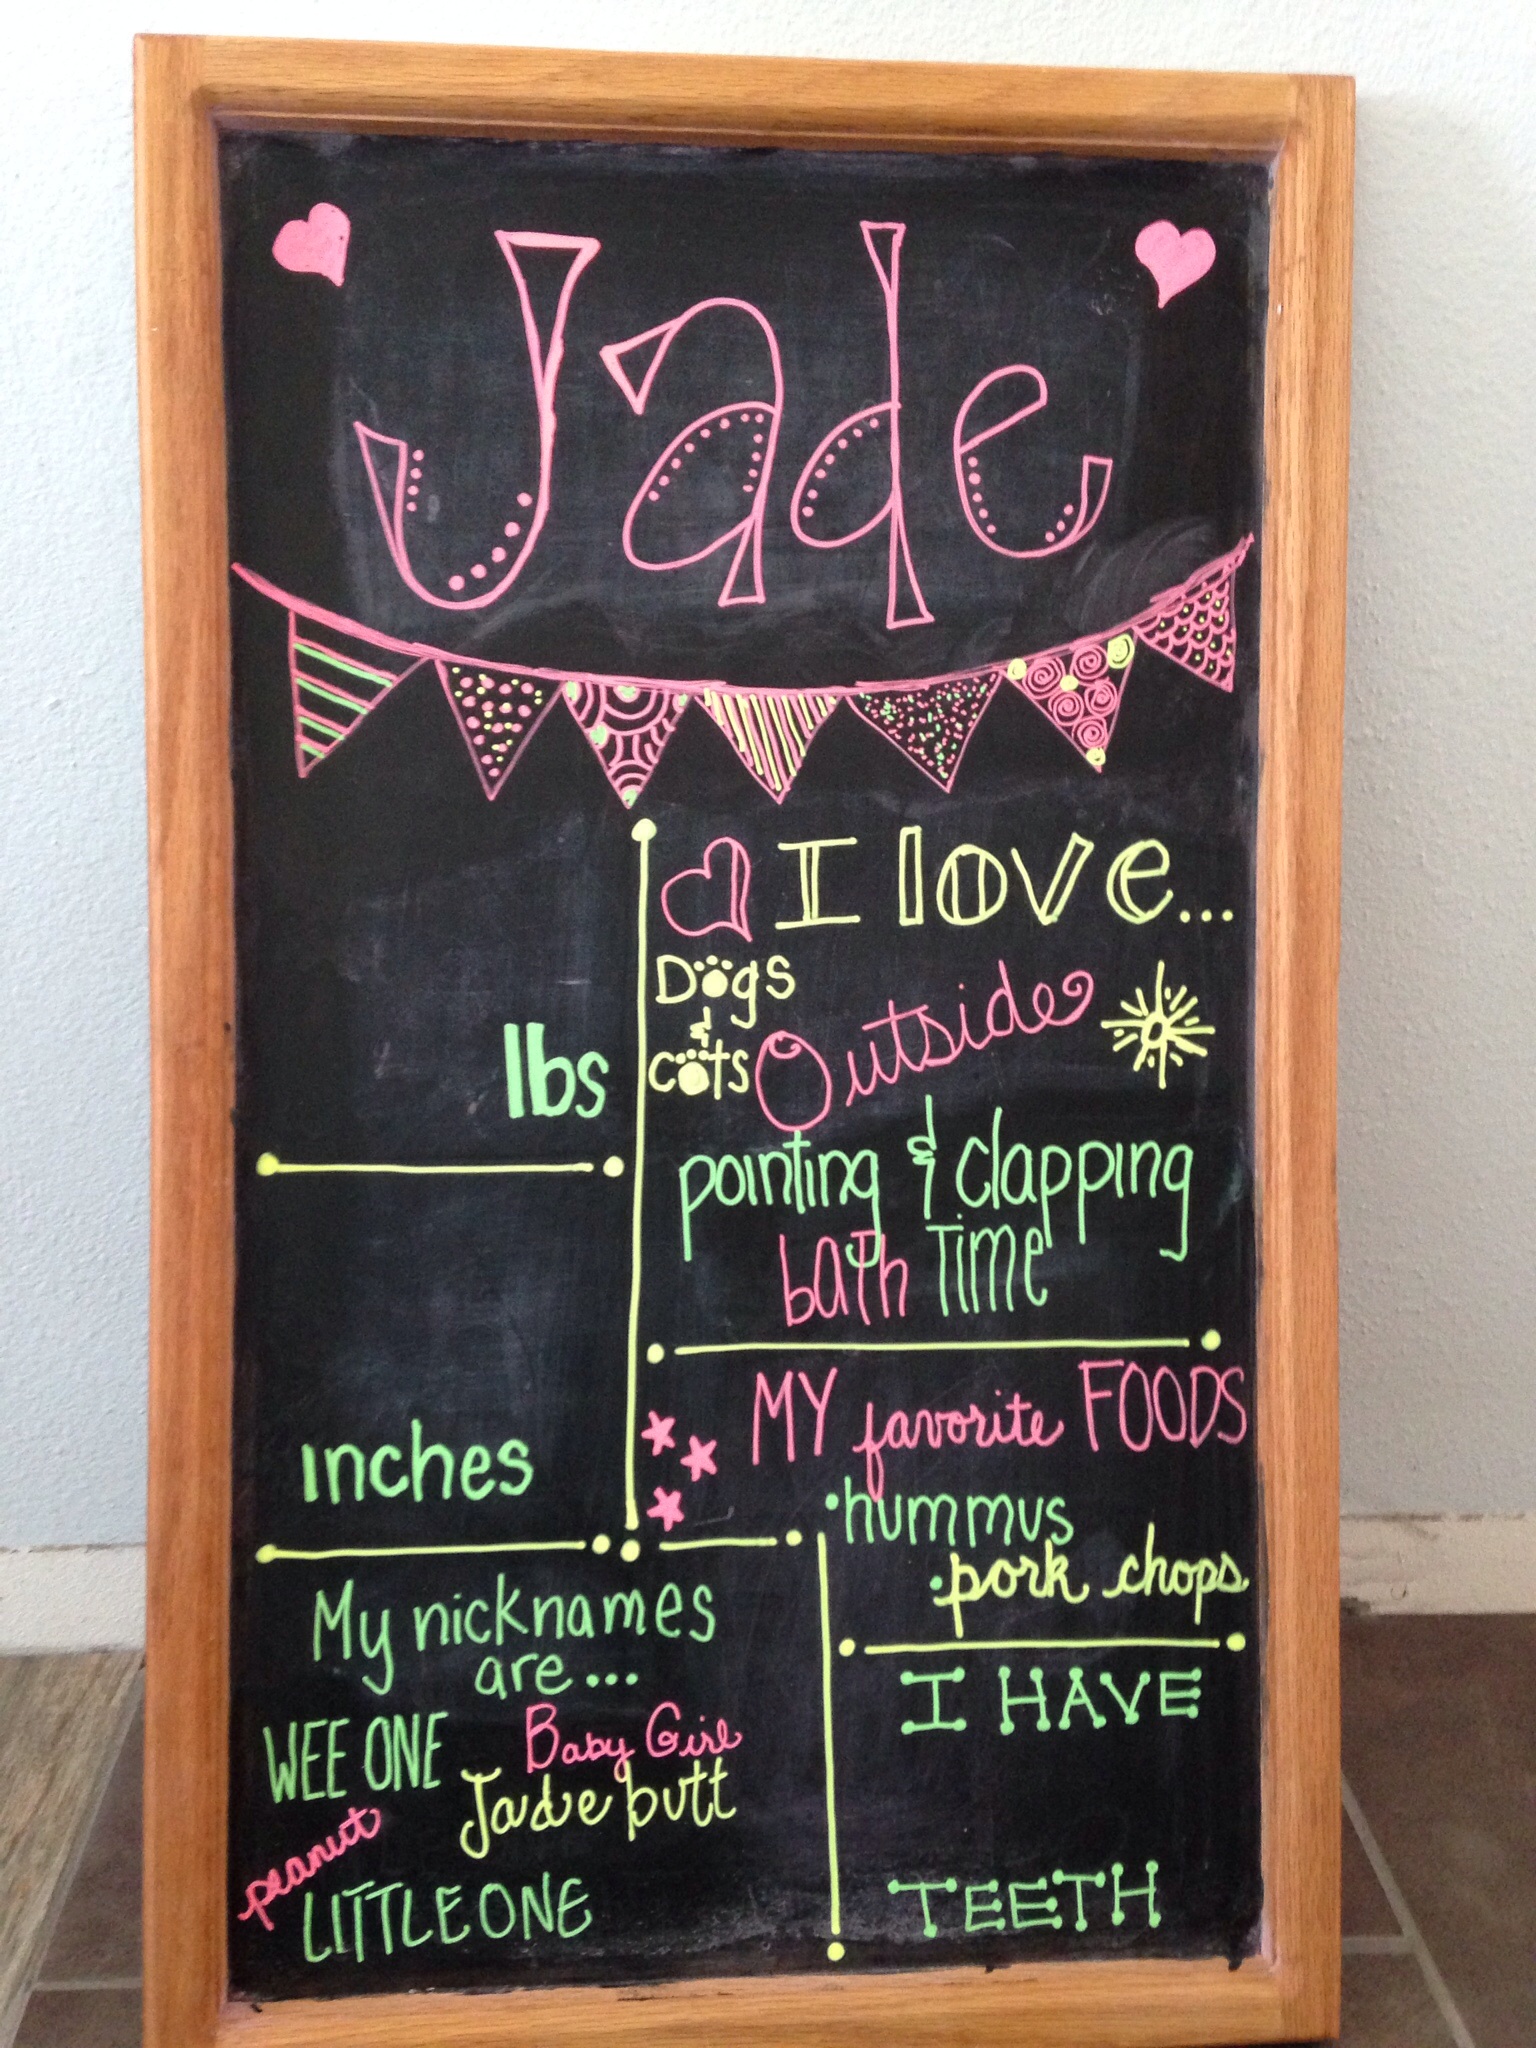 Jade
I love...
Dogs
&
cats
Outside
lbs
pointing & clapping
bath Time
MY favorite FOODS
•hummus
•pork chops
inches
My nicknames
are...
WEE ONE
Baby Girl
Jade butt
peanut
LITTLE ONE
I HAVE
TEETH